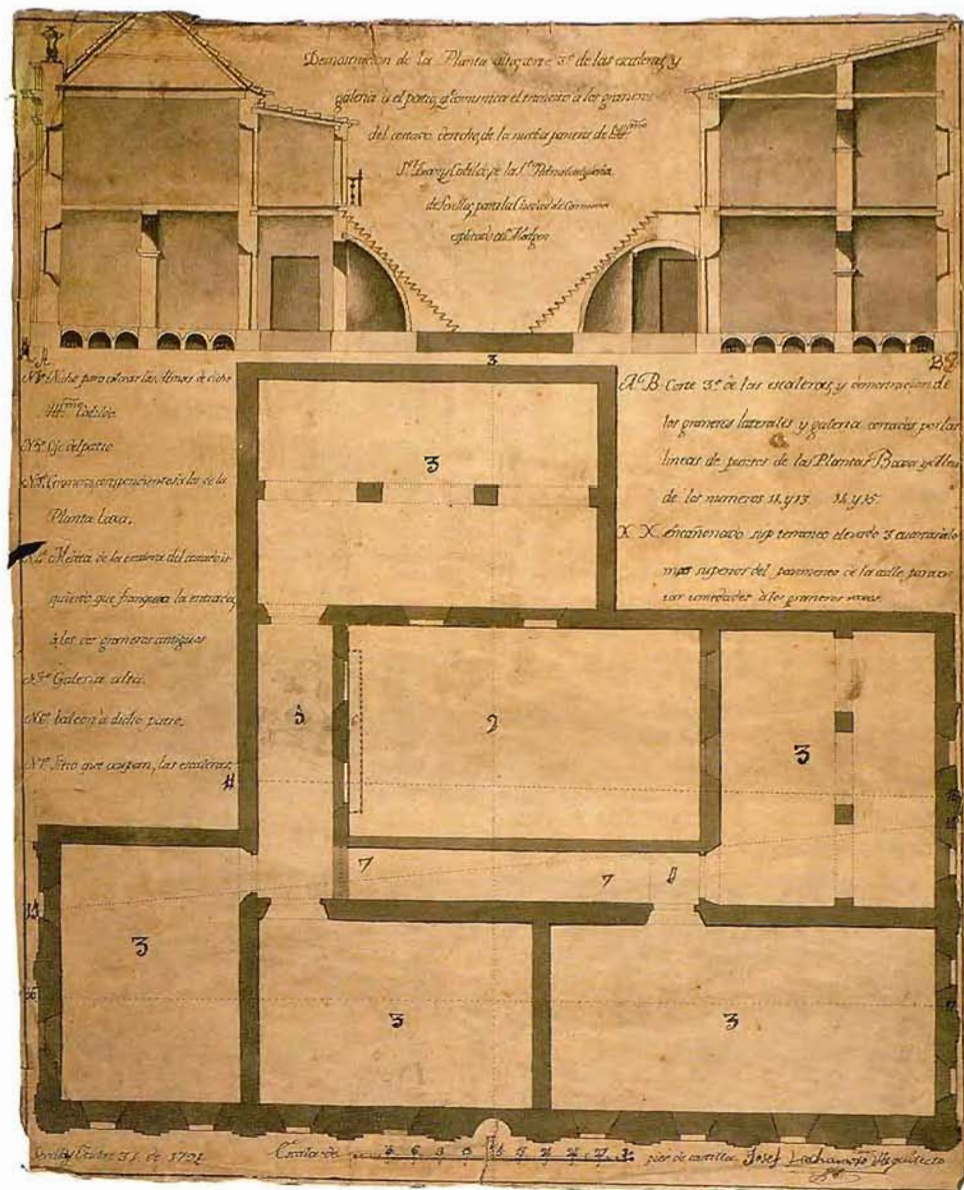 Demostracion de la Planta alta, corte 3º de las escaleras, y
galeria á el patio, qº comunica el transito á los graneros
del costado derecho, de la nueva panera de
Sr. Dean y Cabildo, de la Sta.
de Sevilla, para la Ciudad de Carmona
A A
B
3
Nº 1º Nicho para colocar las Armas de dicho
Cabildo.
Nº 2º Ojo del patio
Nº 3º Graneros correspondientes á los de la
Planta baxa.
Nº 4º Meseta de la escalera del costado iz-
quierdo que franquea la entrada
á los dos graneros antiguos
Nº 5º Galeria alta.
Nº 6º balcon á dicho patio.
Nº 7º Sitio que ocupan, las escaleras.
A. B. Corte 3º de las escaleras, y demostracion de
los graneros laterales y galeria cortados por las
lineas de puntos de las Plantas Baxa y Alta
de los numeros 11. y 13 14. y 15.
X X. encañonado subterraneo elevado 3 cuartas á lo
mas superior del pavimento de la calle, para
humedades á los graneros vaxos.
3
5
2
3
11
7
7
3
3
3
Sevilla y Octubre 31. de 1791
Escala de pies de castilla
Josef Arquitecto